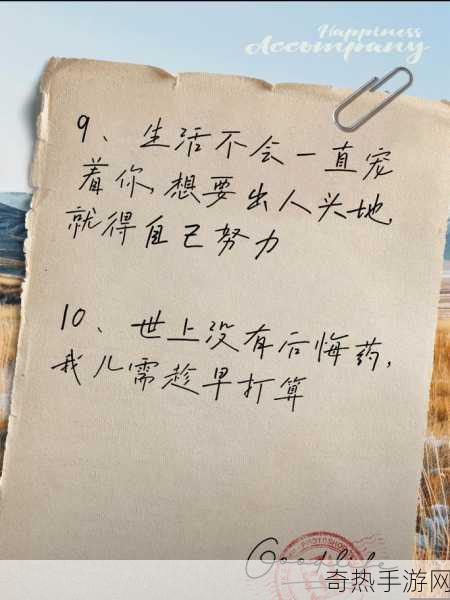 Happiness
Accompany
9、生活不会一直宠
着你,想要出人头地,
就得自己努力
10、世上没有后悔药,
我儿需趁早打算
Good life
PHOTOSHO
奇热手游网